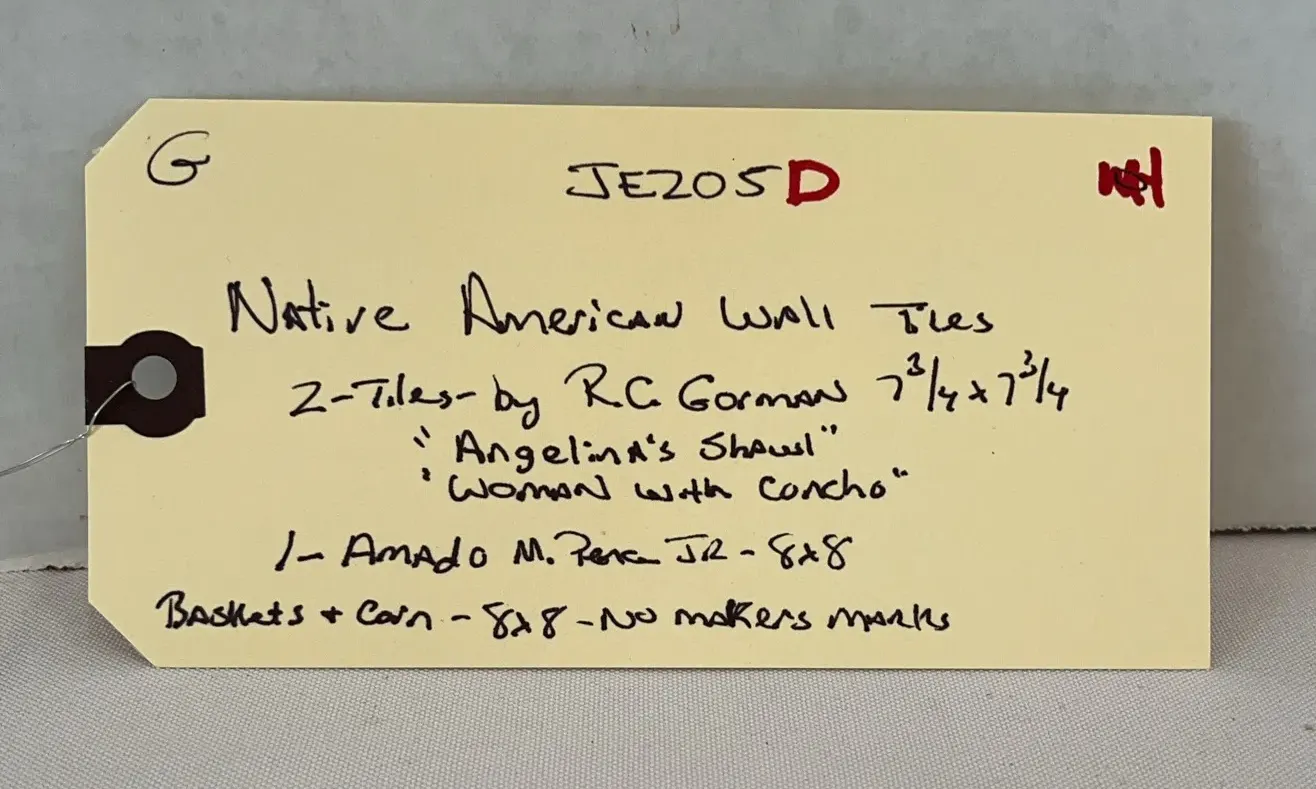 G
JE205D
Native American Wall Tiles
2-Tiles-by R.C. Gorman 7 3/4 x 7 3/4
"Angelina's Shawl"
"Woman with Concho"
1- Amado M. Pena JR - 8x8
Baskets + Corn - 8x8 - No makers marks